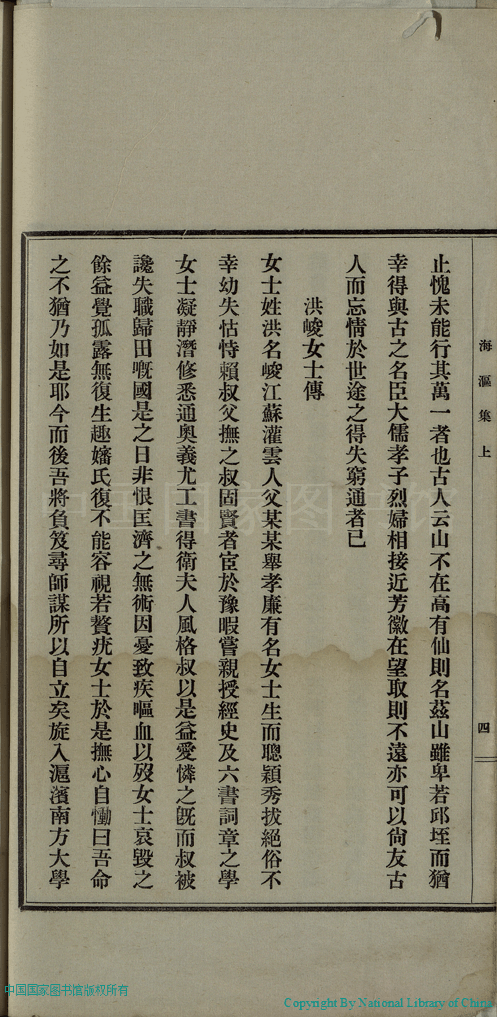 海漚集上
四
止愧未能行其萬一者也古人云山不在高有仙則名茲山雖卑若邱垤而猶
幸得與古之名臣大儒孝子烈婦相接近芳徽在望取則不遠亦可以尙友古
人而忘情於世途之得失窮通者已
洪峻女士傳
女士姓洪名峻江蘇灌雲人父某某舉孝廉有名女士生而聰穎秀拔絕俗不
幸幼失怙恃賴叔父撫之叔固賢者宦於豫暇嘗親授經史及六書詞章之學
女士凝靜潛修悉通奧義尤工書得衛夫人風格叔以是益愛憐之旣而叔被
讒失職歸田嘅國是之日非恨匡濟之無術因憂致疾嘔血以歿女士哀毀之
餘益覺孤露無復生趣嬸氏復不能容視若贅疣女士於是撫心自慟曰吾命
之不猶乃如是耶今而後吾將負笈尋師謀所以自立矣旋入滬濱南方大學
中国国家图书馆
中国国家图书馆版权所有
Copyright By National Library of China